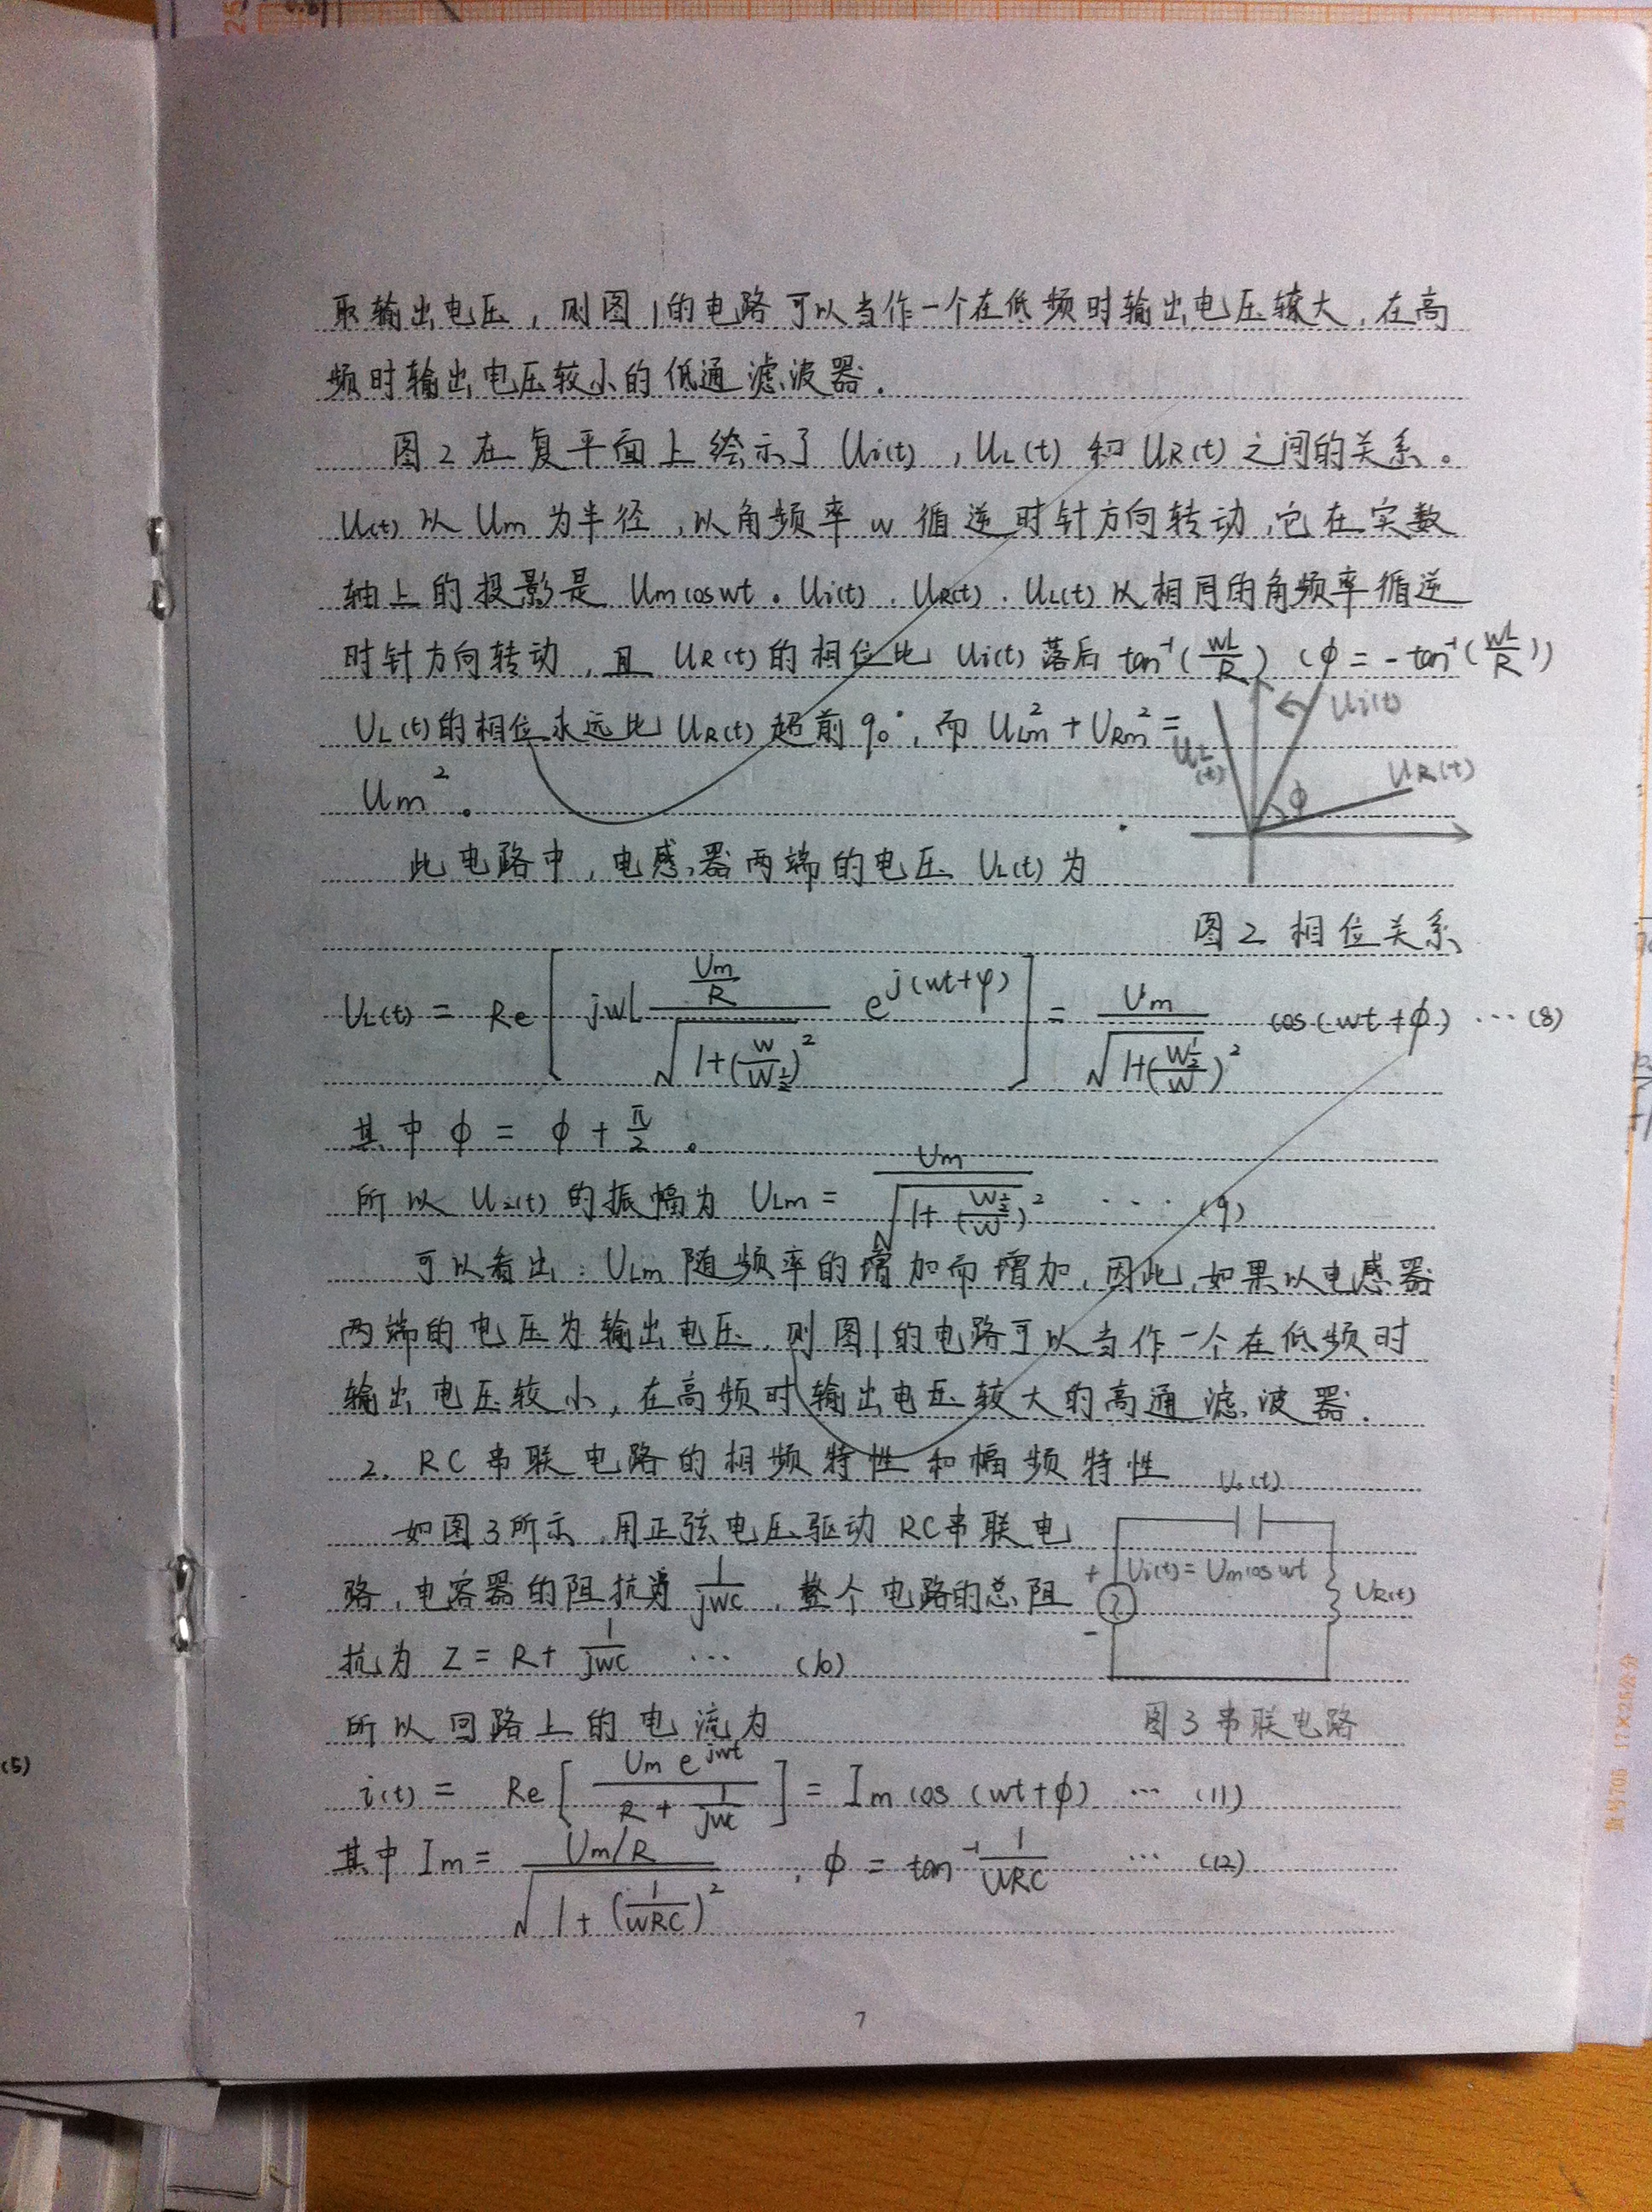 取输出电压，则图1的电路可以当作一个在低频时输出电压较大，在高
频时输出电压较小的低通滤波器．
图2在复平面上绘示了 Ui(t)，UL(t) 和 UR(t) 之间的关系。
U(t) 以 Um 为半径，以角频率 w 循逆时针方向转动，它在实数
轴上的投影是 Um cos wt。Ui(t)．UR(t)．UL(t) 以相同的角频率循逆
时针方向转动，且 UR(t) 的相位比 Ui(t) 落后 tan⁻¹(wL/R) (ϕ = -tan⁻¹(wL/R))
UL(t)的相位永远比 UR(t) 超前 90°，而 ULm² + URm² =
Um²。
Ui(t)
UL(t)
UR(t)
ϕ
此电路中，电感器两端的电压 UL(t) 为
图2 相位关系
UL(t) = Re[ jwL (Um/R)/√(1+(w/w½)²) e^j(wt+φ) ] = Um/√(1+(w½/w)²) cos(wt+ϕ) … (8)
其中 ϕ = ϕ + π/2 。
所以 U2(t) 的振幅为 ULm = Um/√(1+(w½/w)²) … (9)
可以看出：ULm 随频率的增加而增加，因此，如果以电感器
两端的电压为输出电压，则图1的电路可以当作一个在低频时
输出电压较小，在高频时输出电压较大的高通滤波器．
2. RC 串联电路的相频特性和幅频特性
如图3所示，用正弦电压驱动 RC串联电
路，电容器的阻抗为 1/jwc ，整个电路的总阻
抗为 Z = R + 1/jwc … (10)
+ Ui(t) = Um cos wt
-
UR(t)
图3 串联电路
所以回路上的电流为
i(t) = Re[ Um e^jwt / (R + 1/jwc) ] = Im cos (wt+ϕ) … (11)
其中 Im = (Um/R)/√(1+(1/wRC)²) ，ϕ = tan⁻¹ 1/wRC … (12)
7
(5)
17×25公分